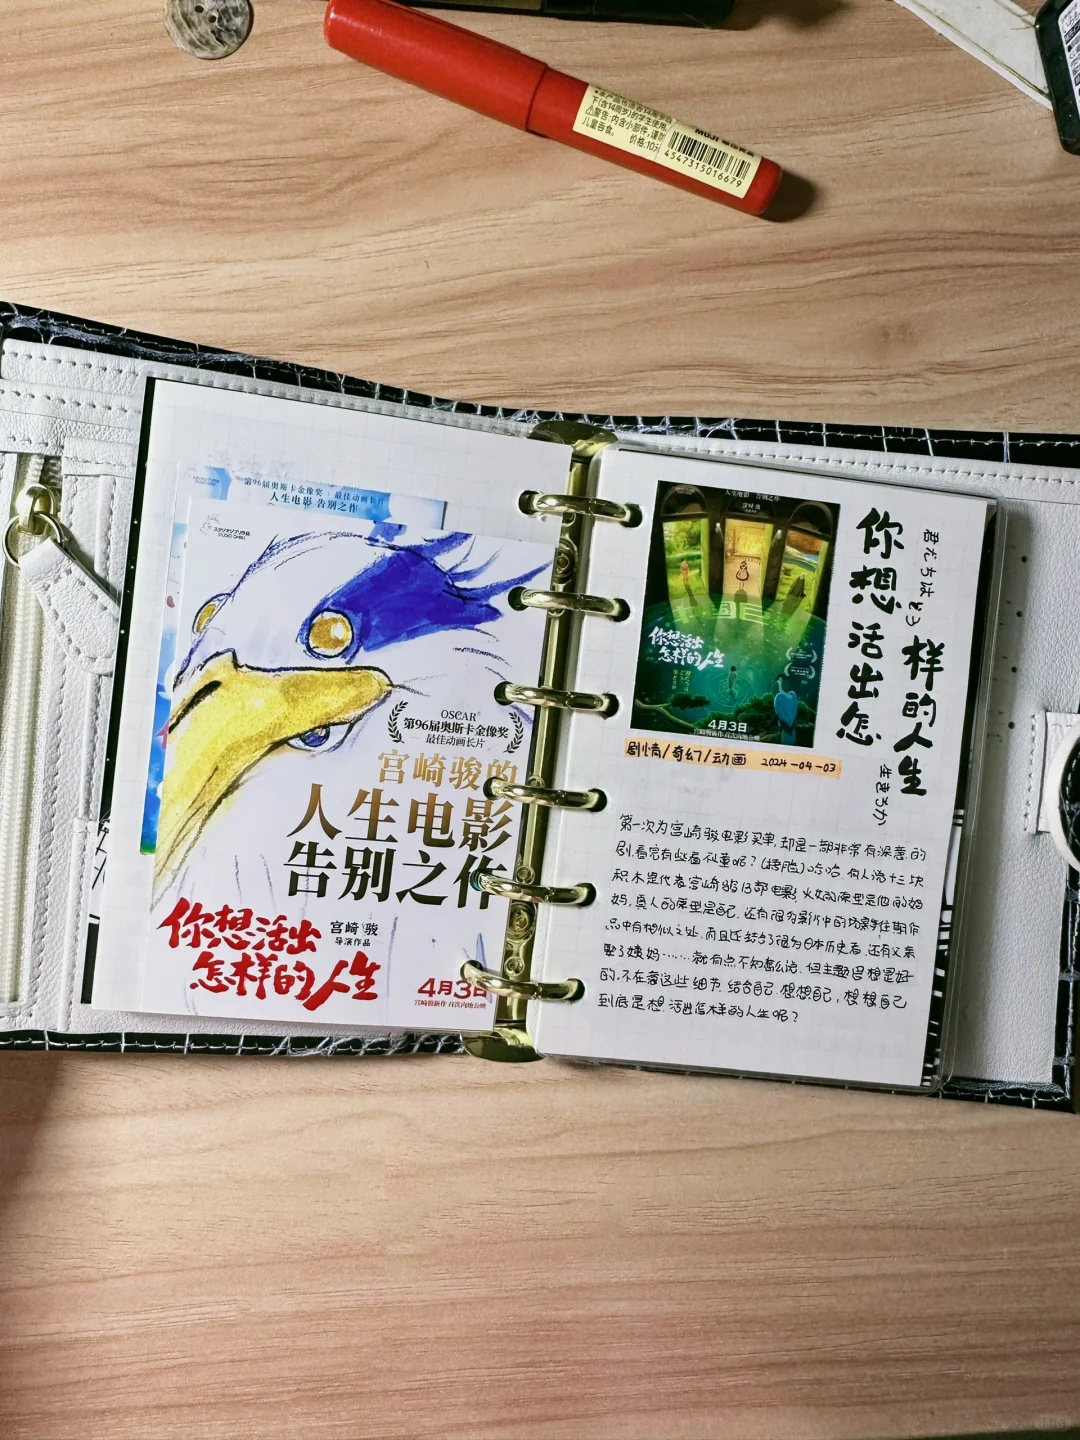 下(含14周岁)的学生使用。
警告:内含小部件,谨防
儿童吞食。
价格:10元
MUJI
4547315016679
第96届奥斯卡金像奖 最佳动画长片
人生电影 告别之作
スタジオジブリ作品
STUDIO GHIBLI
OSCAR®
第96届奥斯卡金像奖
最佳动画长片
宫崎骏的
人生电影
告别之作
你想活出
怎样的人生
宫崎骏
导演作品
4月3日
宫崎骏新作 首次内地公映
人生电影 告别之作
宫崎骏
你想活出
怎样的人生
4月3日
宫崎骏新作 首次内地公映
剧情/奇幻/动画 2024-04-03
你想活出怎
样的人生
君たちはどう
生きるか
第一次为宫崎骏电影买单,却是一部非常有深意的
剧,看完有些层札重呢?(捂脸)哈哈,有人说十三块
积木是代表宫崎骏13部电影,火女的原型是他的妈
妈,真人的原型是自己,还有很多影片中的场景在期作
品中有相似之处,而且还结合了很多日本历史看,还有父亲
娶了姨妈……就有点不知怎么说,但主题思想是好
的,不在意这些细节,结合自己,想想自己,想想自己
到底是想活出怎样的人生呢?